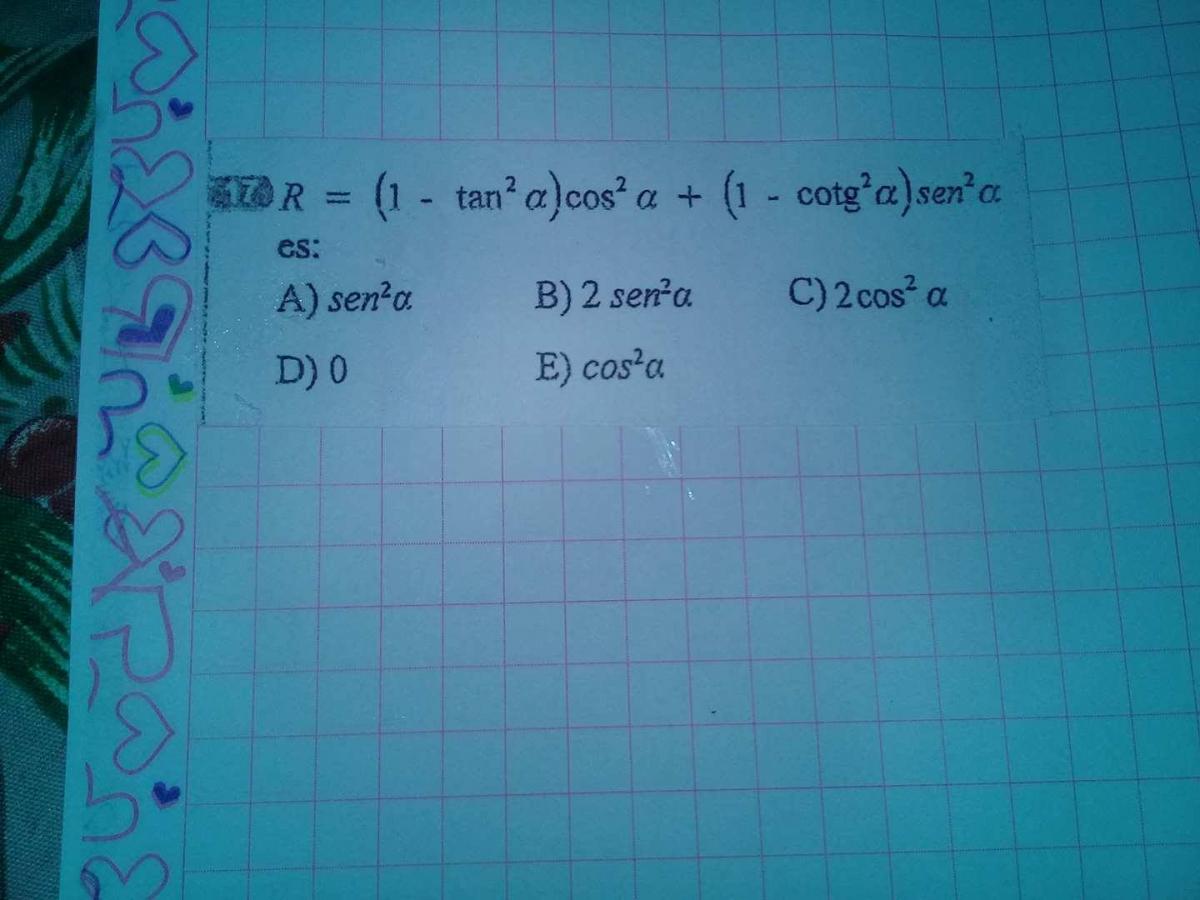 17. R = (1 - tan² α)cos² α + (1 - cotg²α)sen²α
es:
A) sen²α B) 2 sen²α C) 2cos² α
D) 0 E) cos²α